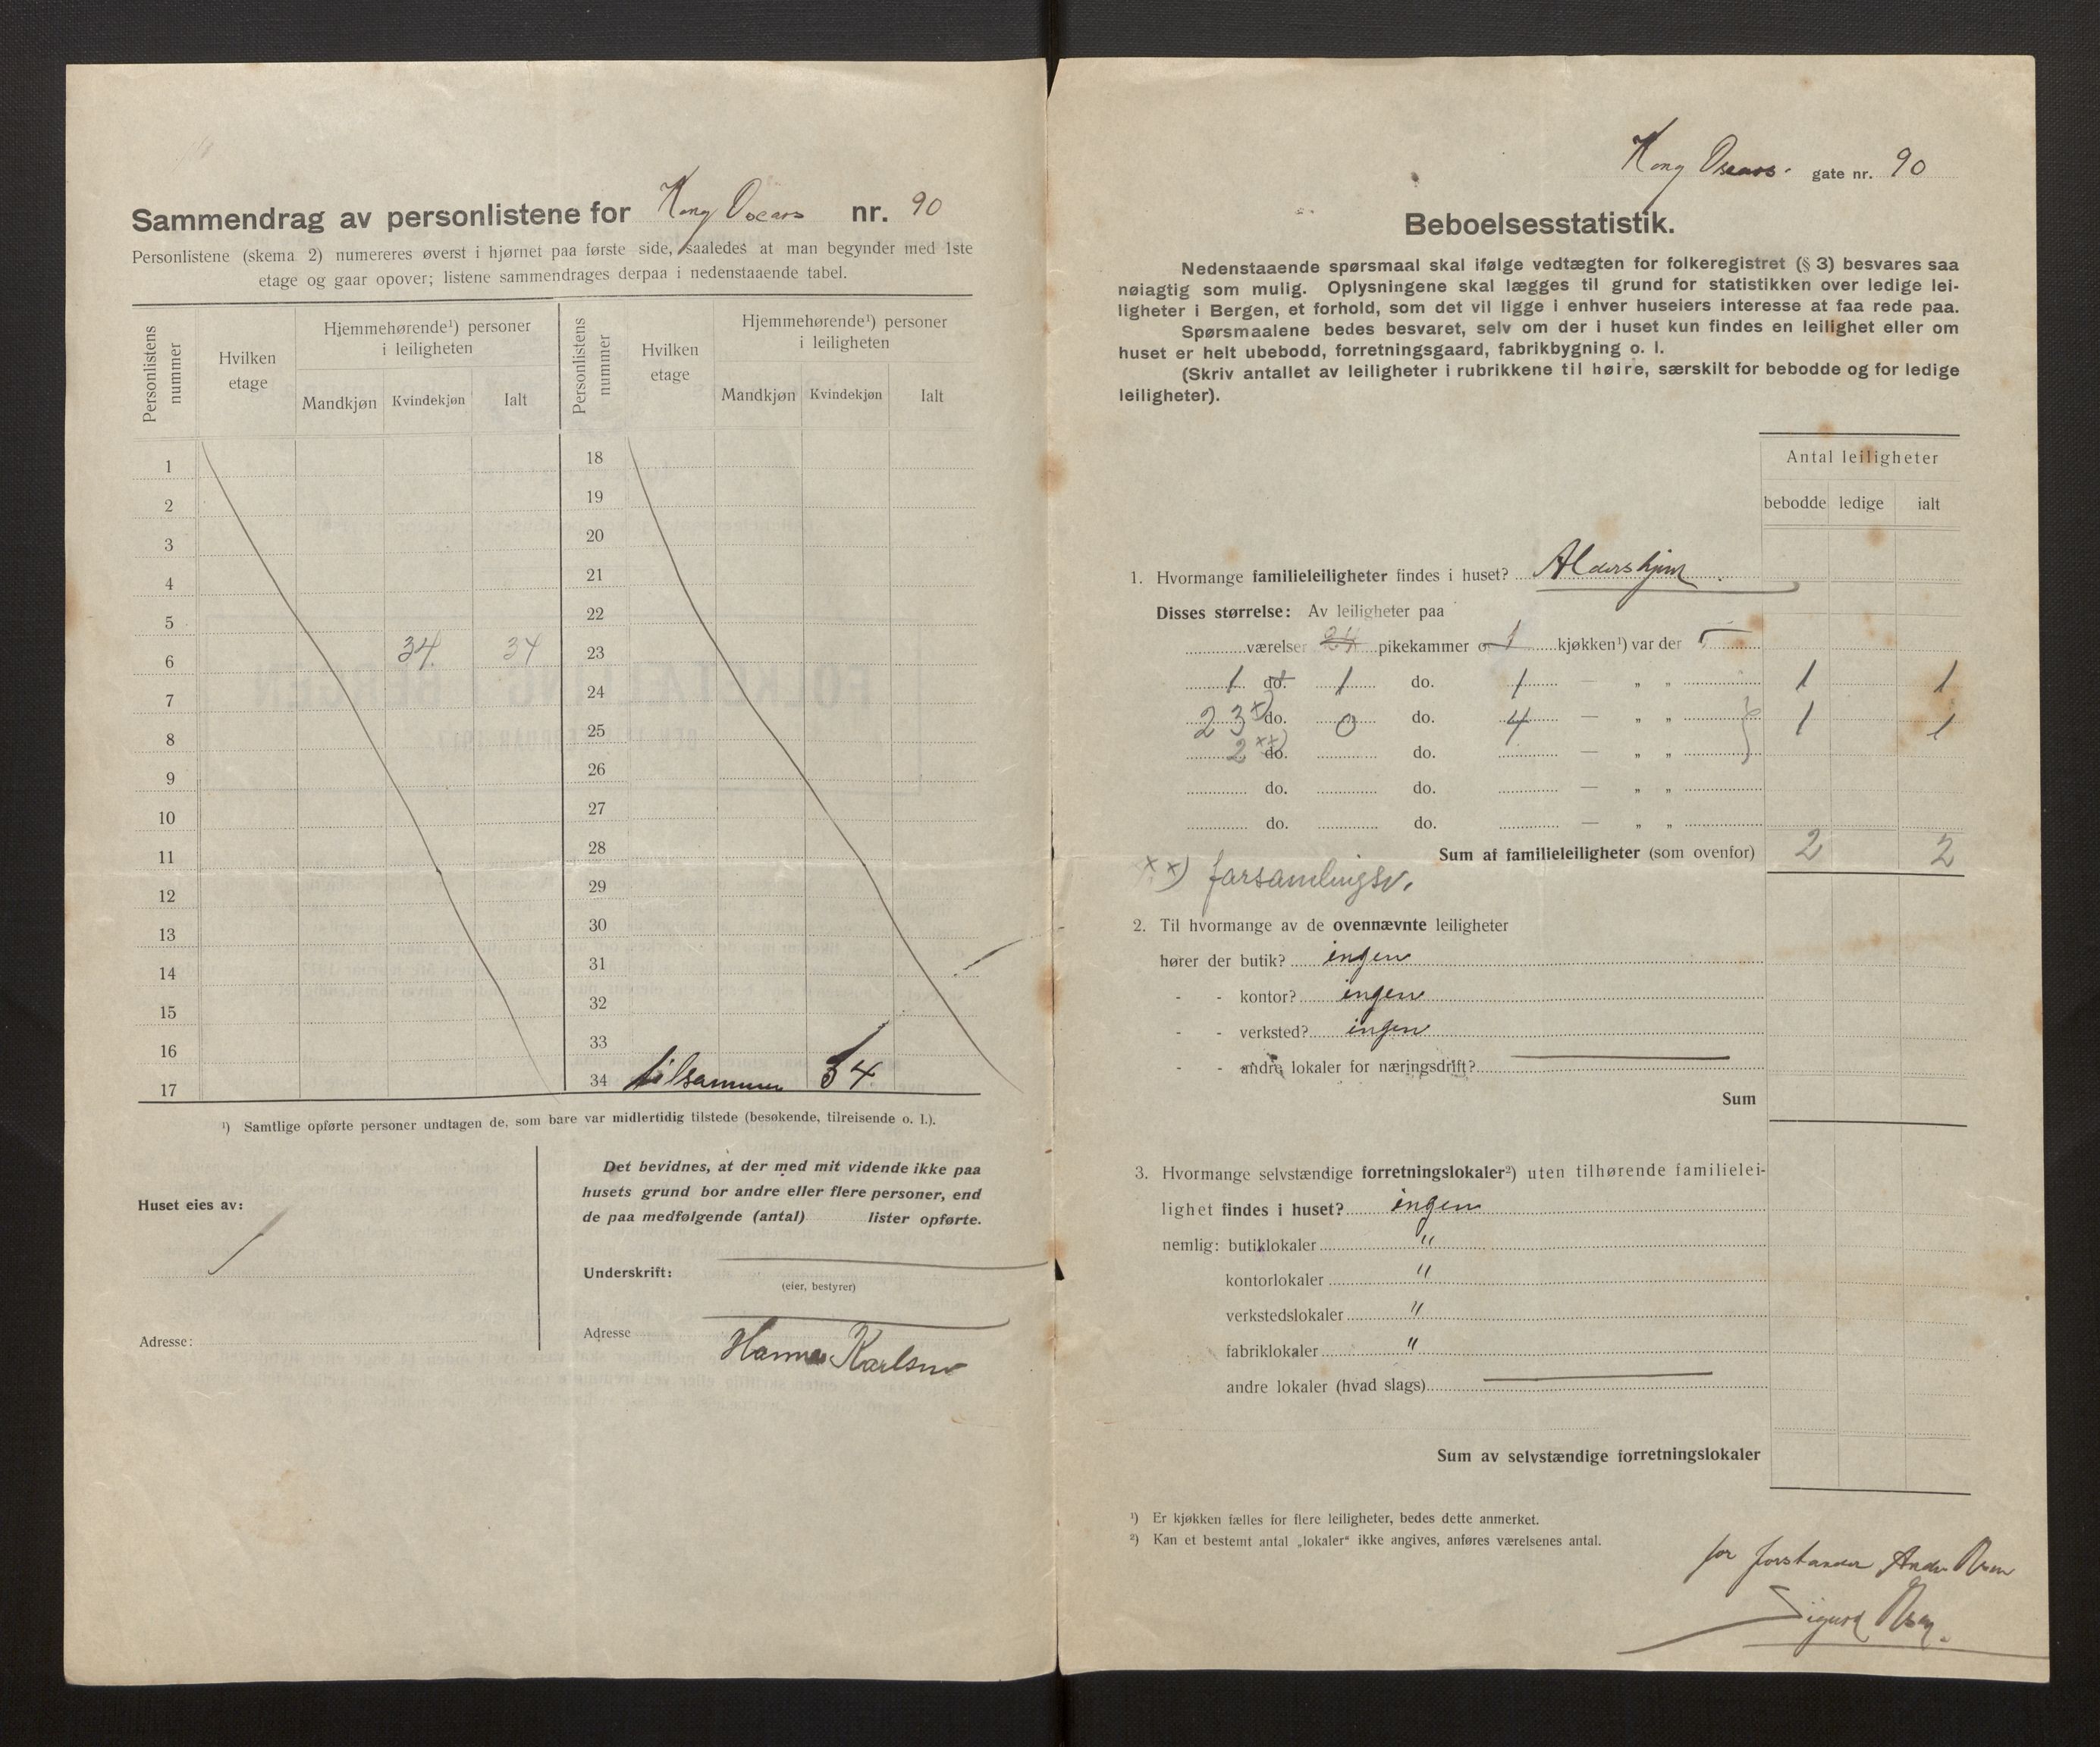 Sammendrag av personlistene for Kong Oscars nr. 90
Personlistene (skema 2) numereres øverst i hjørnet paa første side, saaledes at man begynder med 1ste
etage og gaar opover; listene sammendrages derpaa i nedenstaaende tabel.
Personlistens nummer
Hvilken etage
Hjemmehørende¹) personer i leiligheten
Mandkjøn Kvindekjøn Ialt
Personlistens nummer
Hvilken etage
Hjemmehørende¹) personer i leiligheten
Mandkjøn Kvindekjøn Ialt
1 18
2 19
3 20
4 21
5 22
6 34 34 23
7 24
8 25
9 26
10 27
11 28
12 29
13 30
14 31
15 32
16 33
17 34 tilsammen 34
¹) Samtlige opførte personer undtagen de, som bare var midlertidig tilstede (besøkende, tilreisende o. l.).
Huset eies av:
Adresse:
Det bevidnes, at der med mit vidende ikke paa
husets grund bor andre eller flere personer, end
de paa medfølgende (antal) lister opførte.
Underskrift:
(eier, bestyrer)
Adresse
Hanna Karlsen
Kong Oscars gate nr. 90
Beboelsesstatistik.
Nedenstaaende spørsmaal skal ifølge vedtægten for folkeregistret (§ 3) besvares saa
nøiagtig som mulig. Oplysningene skal lægges til grund for statistikken over ledige lei-
ligheter i Bergen, et forhold, som det vil ligge i enhver huseiers interesse at faa rede paa.
Spørsmaalene bedes besvaret, selv om der i huset kun findes en leilighet eller om
huset er helt ubebodd, forretningsgaard, fabrikbygning o. l.
(Skriv antallet av leiligheter i rubrikkene til høire, særskilt for bebodde og for ledige
leiligheter).
Antal leiligheter
bebodde ledige ialt
1. Hvormange familieleiligheter findes i huset? Aldershjem
Disses størrelse: Av leiligheter paa
værelser 24 pikekammer o 1 kjøkken¹) var der
1 do. 1 do. 1 — " " 1 1
23 x) do. 0 do. 4 — " " 1 1
2 xx) do. do. — " "
do. do. — " "
do. do. — " "
Sum af familieleiligheter (som ovenfor) 2 2
xx) forsamlingsv.
2. Til hvormange av de ovennævnte leiligheter
hører der butik? ingen
- - kontor? ingen
- - verksted? ingen
- - andre lokaler for næringsdrift?
Sum
3. Hvormange selvstændige forretningslokaler²) uten tilhørende familielei-
lighet findes i huset? ingen
nemlig: butiklokaler "
kontorlokaler "
verkstedslokaler "
fabriklokaler "
andre lokaler (hvad slags)
Sum av selvstændige forretningslokaler
¹) Er kjøkken fælles for flere leiligheter, bedes dette anmerket.
²) Kan et bestemt antal „lokaler“ ikke angives, anføres værelsenes antal.
for forstander
Sigurd